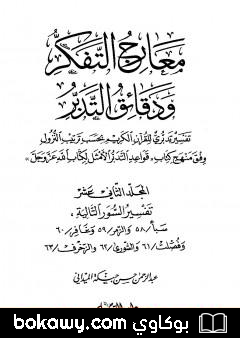 معارج التفكر
ودقائق التدبر
تفسير تدبري للقرآن الكريم بحسب ترتيب النزول
وفق منهج كتاب «قواعد التدبر الأمثل لكتاب الله عز وجل»
المجلد الثاني عشر
تفسير السور التالية:
سبأ/٥٨ والزمر/٥٩ وغافر/٦٠
وفصلت/٦١ والشورى/٦٢ والزخرف/٦٣
عبد الرحمن حسن حبنكة الميداني
بوكاوي
www.bokawy.com